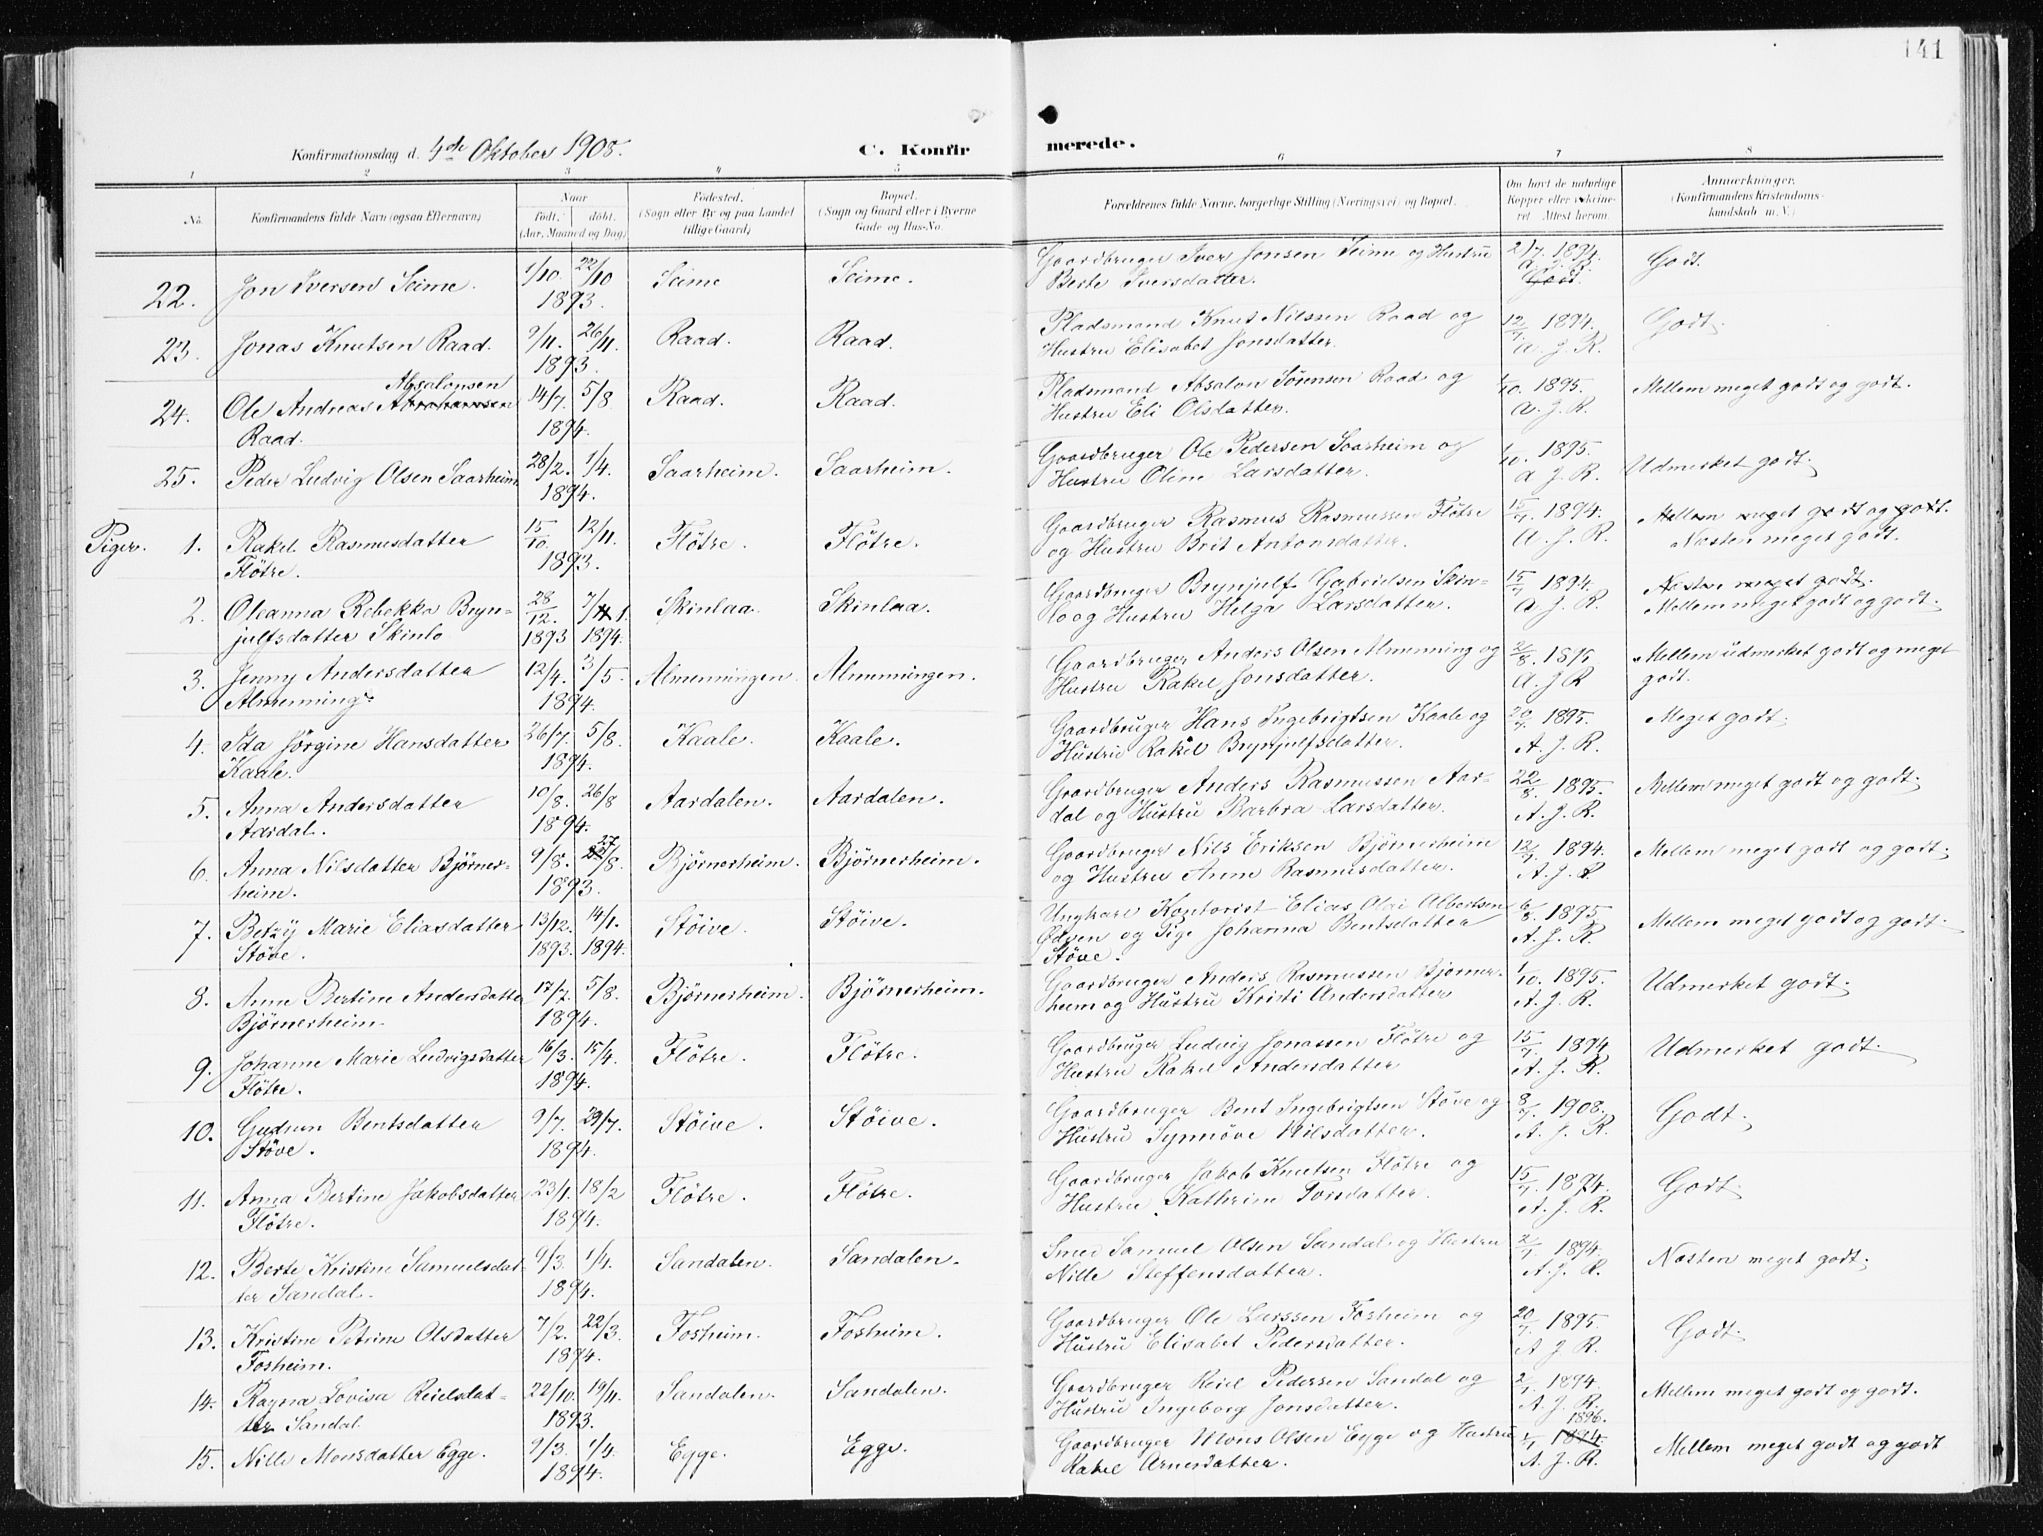 141
Konfirmationsdag d. 4de Oktober 1908.
C. Konfir merede.
1 2 3 4 5 6 7 8
No. Konfirmandens fulde Navn (ogsaa Efternavn) Naar født, døbt. (Aar, Maaned og Dag) Fødested. (Sogn eller By og paa Landet tillige Gaard) Bopæl. (Sogn og Gaard eller i Byerne Gade og Hus-No. Forældrenes fulde Navne, borgerlige Stilling (Næringsvei) og Bopæl. Om havt de naturlige Kopper eller vakcineret. Attest herom. Anmærkninger. (Konfirmandens Kristendomskundskab m. V.)
22. Jon Iversen Seime. 1/10 22/10 Seime Seime. Gaardbruger Iver Jonsen Seime og Hustru 2/7 1894. Godt.
1893. Berte Iversdatter. A. J. R. Godt.
23. Jonas Knutsen Raad. 9/11. 26/11 Raad. Raad. Pladsmand Knut Nilssen Raad og 12/7 1894. Godt.
1893. Hustru Elisabet Jonsdatter. A. J. R.
24. Ole Andreas Abrahamsen Absalonsen 14/7. 5/8 Raad. Raad. Pladsmand Absalon Sørensen Raad og 1/10. 1895. Mellem meget godt og godt.
Raad. 1894. Hustru Eli Olsdatter. A. J. R.
25. Peder Ludvig Olsen Saarheim 28/2. 1/4. Saarheim. Saarheim. Gaardbruger Ole Pedersen Saarheim og 1/10. 1895. Udmerket godt.
1894. Hustru Oline Larsdatter. A. J. R.
Piger. 1. Rakel Rasmusdatter 15/10 12/11. Fløtre. Fløtre. Gaardbruger Rasmus Rasmussen Fløtre 15/7. 1894. Mellem meget godt og godt.
Fløtre. 1893. og Hustru Brit Antonsdatter. A. J. R. Næsten meget godt.
2. Oleanna Rebekka Bryn= 28/12. 7/1. Skinlaa. Skinlaa. Gaardbruger Brynjulf Gabrielsen Skin= 15/7 1894 Næsten meget godt.
julfsdatter Skinlo 1893 1894. lo og Hustru Helga Larsdatter. A. J. R. Mellem meget godt og godt.
3. Jenny Andersdatter 12/4. 3/5. Almenningen. Almenningen. Gaardbruger Anders Olsen Almenning og 2/8. Mellem udmerket godt og meget
Almenning. 1894. Hustru Rakel Jonsdatter. A. J R godt.
4. Ida Jørgine Hansdatter 26/7. 5/8. Kaale. Kaale. Gaardbruger Hans Ingebrigtsen Kaale og 20/7. 1895. Meget godt.
Kaale. 1894. Hustru Rakel Brynjulfsdatter. A. J. R.
5. Anna Andersdatter 10/8. 26/8 Aardalen. Aardalen. Gaardbruger Anders Rasmussen Aar= 22/8. 1895. Mellem meget godt og godt.
Aardal. 1894. dal og Hustru Barbra Larsdatter. A. J. R.
6. Anna Nilsdatter Bjørner= 9/8. 27/8. Bjørnerheim. Bjørnerheim. Gaardbruger Nils Eriksen Bjørnerheim 12/7. 1894. Mellem meget godt og godt.
heim. 1893. og Hustru Anne Rasmusdatter. A. J. R
7. Betzy Marie Eliasdatter 13/12. 14/1. Støive. Støive. Ungkarl Kontorist Elias Olai Albertsen 6/8. 1895. Mellem meget godt og godt.
Støve. 1893. 1894. Ødven og Pige Johanna Bentsdatter A. J. R.
Støve.
8. Anne Bertine Andersdatter 17/7. 5/8. Bjørnerheim. Bjørnerheim. Gaardbruger Anders Rasmussen Bjørner= 1/10. 1895. Udmerket godt.
Bjørnerheim. 1894. heim og Hustru Kristi Andersdatter A. J. R.
9. Johanne Marie Ludvigsdatter 16/3. 15/4. Fløtre. Fløtre. Gaardbruger Ludvig Jonassen Fløtre og 15/7. 1894 Udmerket godt.
Fløtre. 1894. Hustru Rakel Andersdatter A. J. R.
10. Gudrun Bentsdatter 9/7. 29/7. Støive. Støive. Gaardbruger Bent Ingebrigtsen Støve og 8/7. 1908. Godt.
Støve. 1894. Hustru Synnøve Nilsdatter. A. J. R.
11. Anna Bertine Jakobsdatter 23/1. 18/2 Fløtre. Fløtre. Gaardbruger Jakob Knutsen Fløtre og 15/7. 1894. Godt.
Fløtre. 1894. Hustru Kathrine Tonsdatter. A. J. R.
12. Berte Kristine Samuelsdat= 9/3. 1/4. Sandalen. Sandalen. Smed Samuel Olsen Sandal og Hustru 2/7. 1894. Næsten meget godt.
ter Sandal. 1894. Nille Steffensdatter. A. J. R.
13. Kristine Petrine Olsdatter 7/2. 22/3. Fosheim. Fosheim. Gaardbruger Ole Larssen Fosheim og 20/7. 1895. Godt.
Fosheim. 1894. Hustru Elisabet Pedersdatter. A J R.
14. Ragna Lovisa Reielsdat= 22/10. 19/11. Sandalen. Sandalen. Gaardbruger Reiel Pedersen Sandal og 2/7. 1894. Mellem meget godt og godt.
ter Sandal 1893. Hustru Ingeborg Jonsdatter. A. J. R.
15. Nille Monsdatter Egge. 9/3. 1/4. Egge. Egge. Gaardbruger Mons Olsen Egge og Hustru 1/7 1894. 1896. Mellem meget godt og godt
1894. Rakel Arnesdatter. A. J. R.